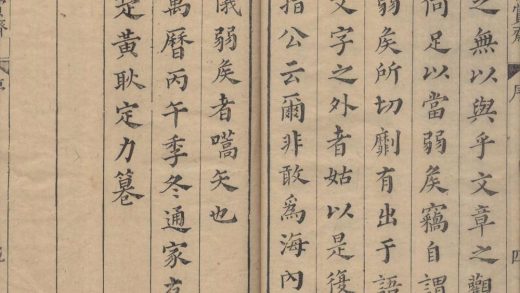 之無以與乎文章之觀
何足以當弱矦竊自謂
弱矦所切劘有出于語
文字之外者姑以是復
指公云爾非敢為海内
俄弱矦者嚆矢也
萬曆丙午季冬通家友
定黃耿定力篹